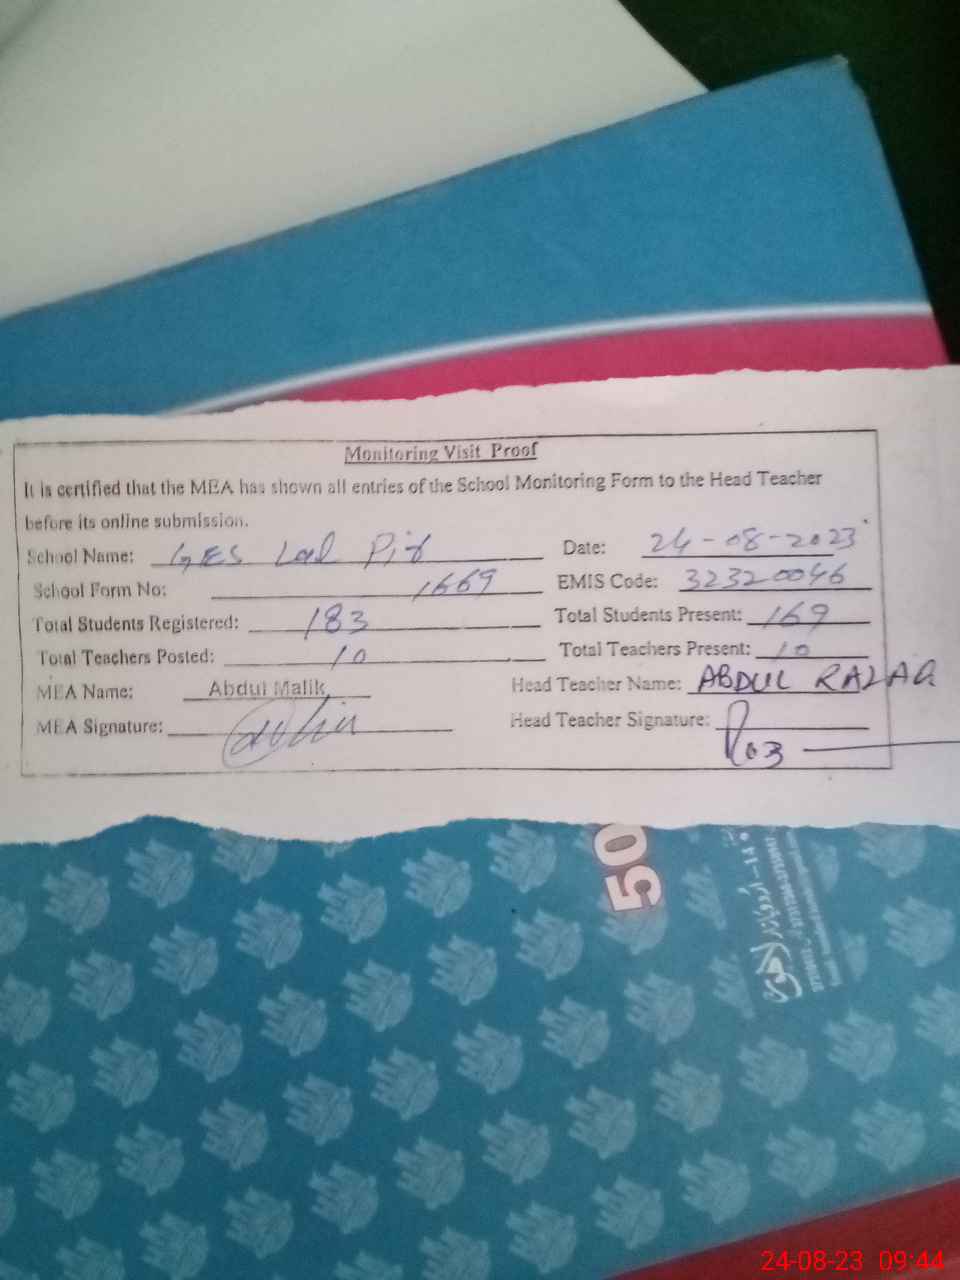 Monitoring Visit Proof
It is certified that the MEA has shown all entries of the School Monitoring Form to the Head Teacher
before its online submission.
School Name: GES Lal Pir Date: 24-08-2023
School Form No: 1669 EMIS Code: 32320046
Total Students Registered: 183 Total Students Present: 169
Total Teachers Posted: 10 Total Teachers Present: 10
MEA Name: Abdul Malik Head Teacher Name: ABDUL RAZAQ
MEA Signature: Head Teacher Signature:
50
لاہور
24-08-23 09:44